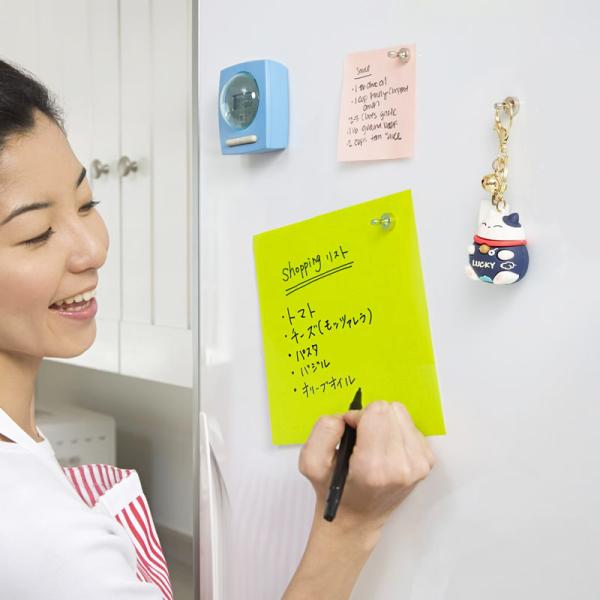 Sauce
• 1 Tbs olive oil
• 1 cup finely chopped
onion
2-3 cloves garlic
• 1 lb ground beef
• 2 cups tom sauce
shopping リスト
・トマト
・チーズ(モッツァレラ)
・パスタ
・バジル
・オリーブオイル
LUCKY